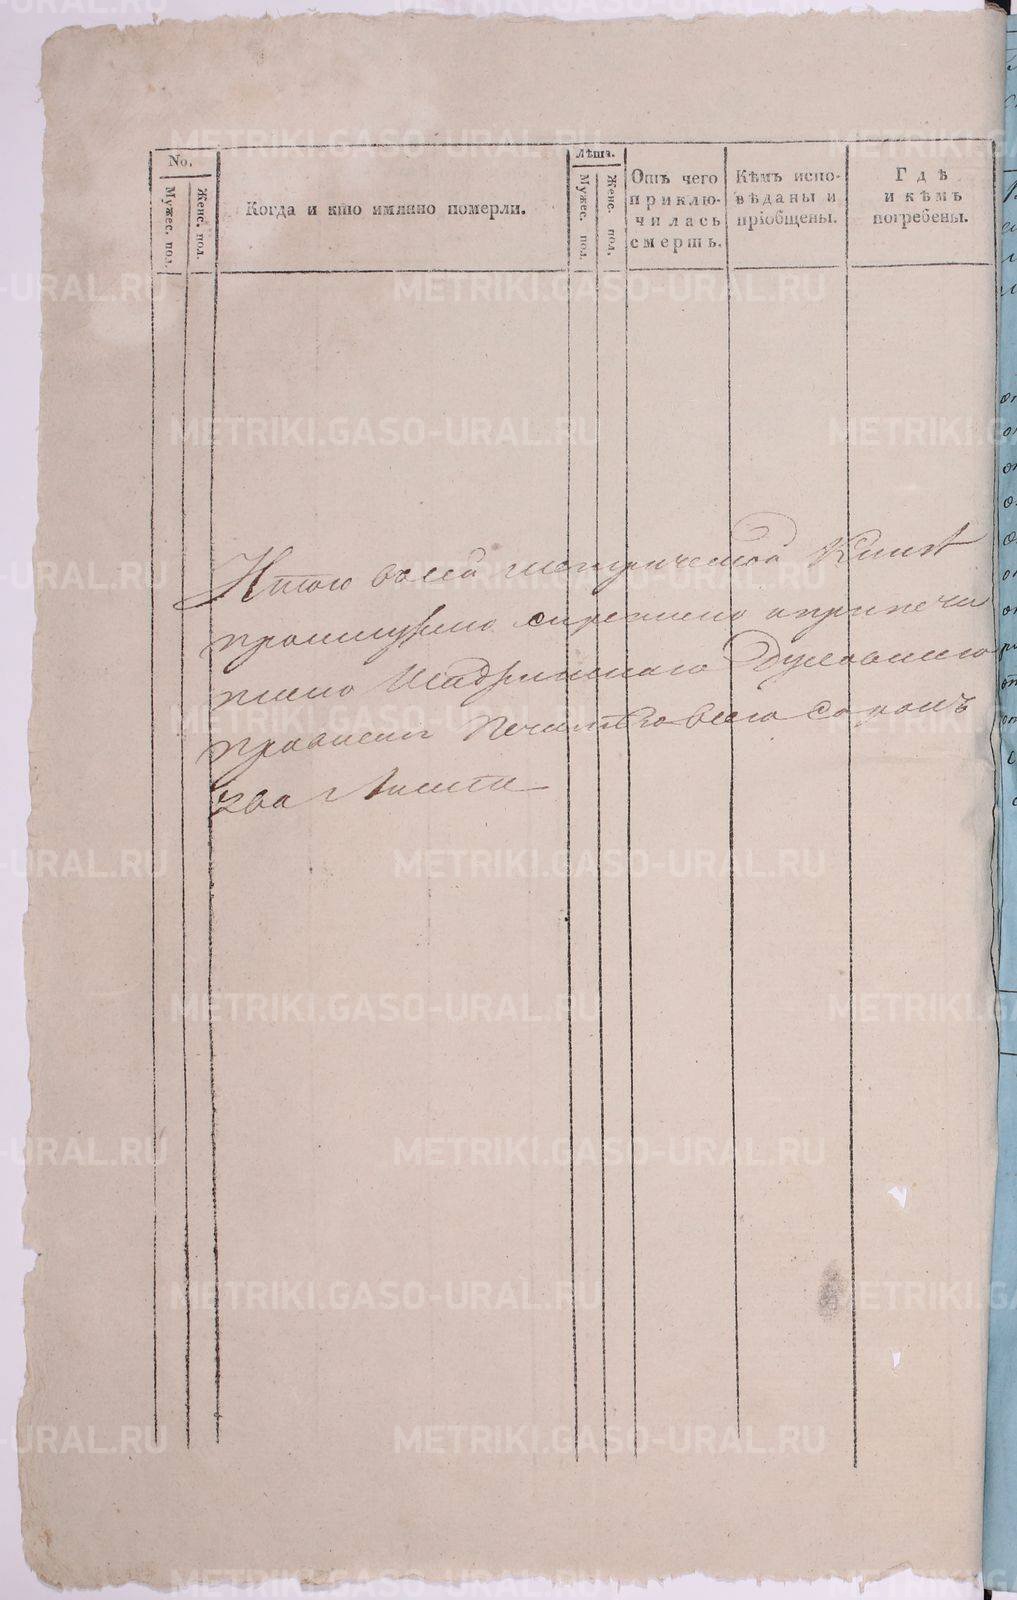 No.
Мужес. пол.
Женс. пол.
Когда и кто имянно померли.
Лѣта.
Мужес. пол.
Женс. пол.
Отъ чего
приклю-
чилась
смерть.
Кѣмъ испо-
вѣданы и
пріобщены.
Гдѣ
и кѣмъ
погребены.
Итого всей метрической Книгѣ
прошнурено скреплено и припеча
тано Шадринскаго Духовнаго
правленія Печатью всего сорокъ
два Листа
METRIKI.GASO-URAL.RU